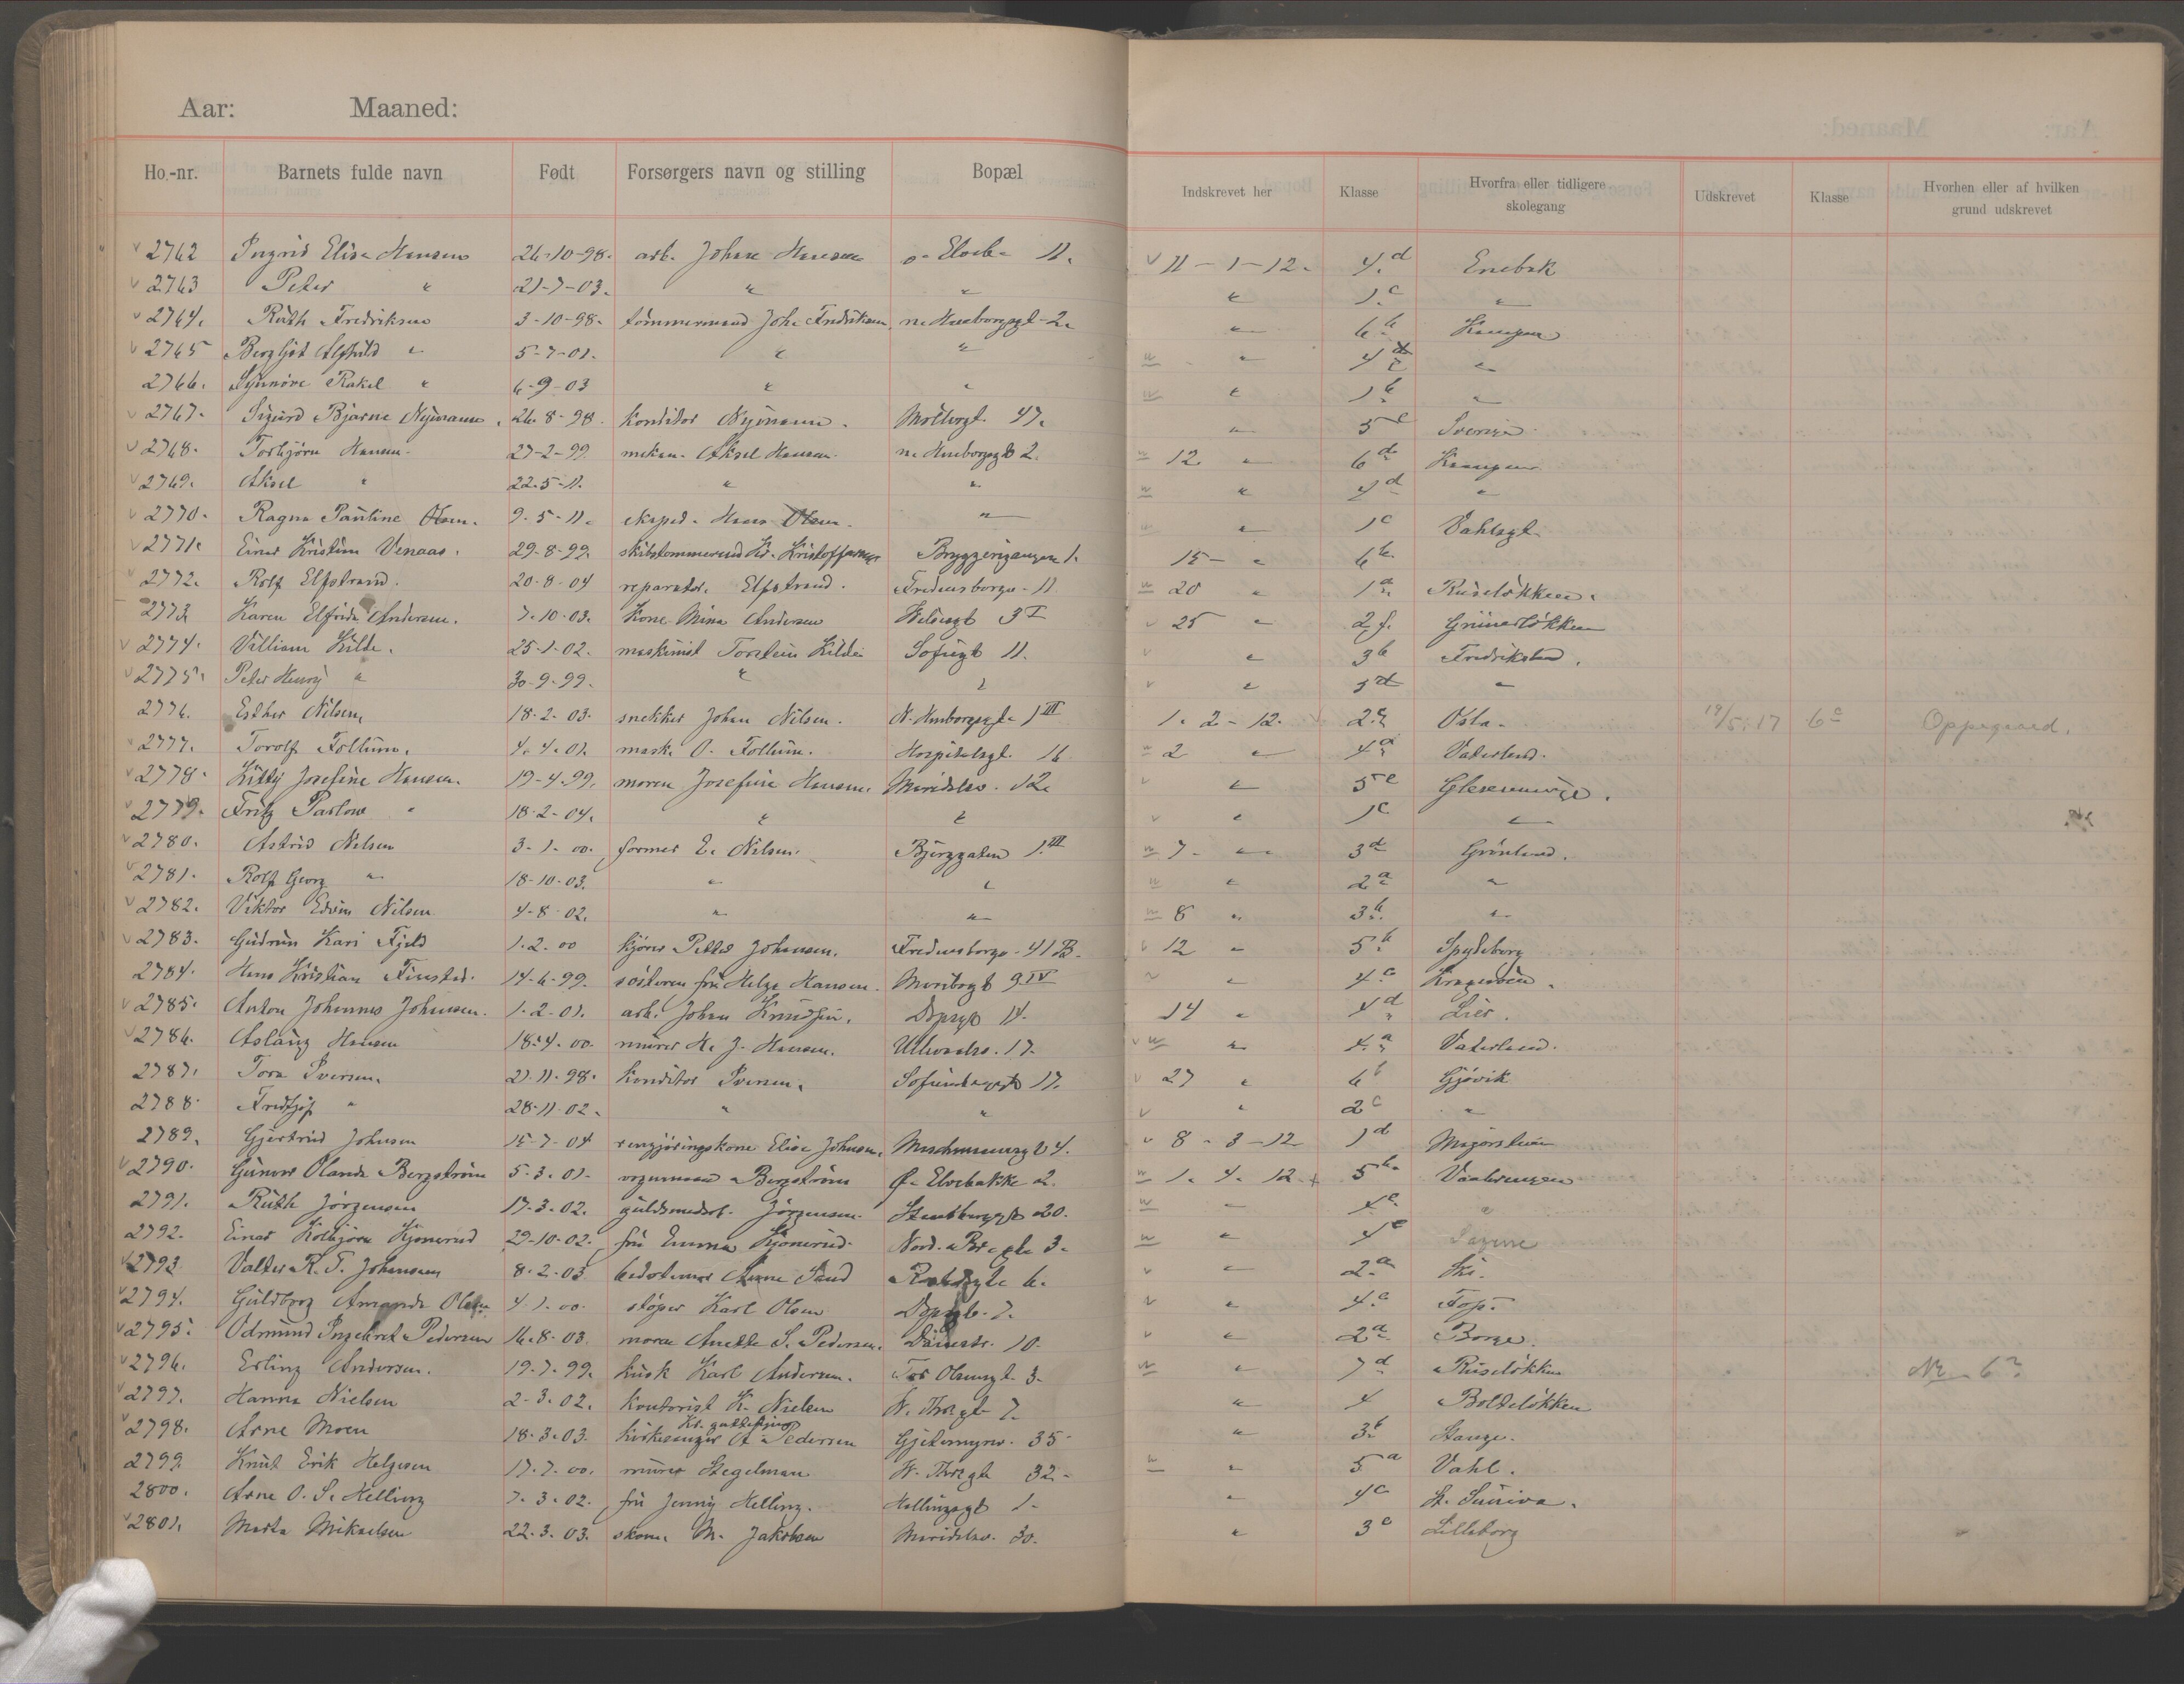 Aar: Maaned:
Ho.-nr. Barnets fulde navn Født Forsørgers navn og stilling Bopæl Indskrevet her Klasse Hvorfra eller tidligere skolegang Udskrevet Klasse Hvorhen eller af hvilken grund udskrevet
2762 Ingrid Elise Hansen 26-10-98. arb. Johan Hansen 11. 11-1-12. 4.d Enebak
2763 Peter " 21-7-03. " " " 1c "
2764. Ruth Fredriksen 3-10-98. tömmermand Joh. Fredriksen, 2. " 6b Kampen
2765 Bergljot Alfhild " 5-7-01. " " " 4 "
2766. Synnöve Rakel " 6-9-03 " " " 1b "
2767. Sigurd Bjarne Nymann. 26-8-98. konditor Nymann. Möllergt. 47. " 5e Sverige
2768. Torbjörn Hansen. 27-2-99. mekan. Aksel Hansen. 2. 12. " 6d Kampen
2769. Aksel " 22-5-11. " " " 4d "
2770. Ragna Pauline Olsen. 9-5-11. eksped. Hans Olsen. " " 1c Vahlsgt.
2771. Einar Kristian Venaas. 29-8-99. skibstömmermand Kr. Kristoffersen Bryggerigangen 1. 15- " 6b
2772. Rolf Elfstrand. 20-8-04 reparatör. Elfstrand. Fredensborgv. 11 20 " 1a Ruselökken.
2773 Karen Elfrida Andersen. 7-10-03. Kone Mina Andersen 3 I 25 " 2f. Grünerlökken
2774. Villiam Kilde. 25-1-02. maskinist Torstein Kilde Sofiegt 11. " 3b Fredrikstad.
2775. Peter Henry " 30-9-99. " " " 5d "
2776. Esther Nilsen 18-2-03. snekker Johan Nilsen. 1 III 1. 2-12. 2c Oslo. 19/5.17 6c Oppegaard.
2777. Torolf Follum. 4.4.01. mask. O. Follum. Hospitalsgt. 16 2 " 4a Vaterland.
2778. Kitty Josefine Hansen. 19-4.99. moren Josefine Hansen. Maridalsv. 12. " 5e
2779. Fritz Parlow " 18-2-04. " " " 1c "
2780. Astrid Nilsen 3-1-00. former E. Nilsen. Bjerggaten 1. III 7- " 3d Grönland.
2781. Rolf Georg " 18-10-03. " " " 2a "
2782. Viktor Edvin Nilsen 4-8-02. " " 8 " 3b. "
2783. Gudrun Kari Fjeld 1.2.00 kjörer Petter Johansen. Fredensborgv. 41 B. 12 " 5b Spydeberg
2784. Hans Kristian Finstad. 14-6-99. sösteren fru Helga Hansen. Maribogt 9 IV " 4c Kragerøen.
2785. Anton Johannes Johansen. 1-2-01. arb. Johan Knudsen. Dopsgt 14. 14 " 4d Lier.
2786. Aslaug Hansen 18-4.00. murer H. J. Hansen. Ullevaalsv. 17. " 4.a Vaterland.
2787. Tora Iversen. 21-11-98. konditor Iversen. Sofienberggt 17. 27 " 6b Gjövik
2788. Fredtjof " 28-11-02. " " " 2c "
2789. Gjertrud Johnsen 15-7-04 rengjöringskone Elise Johnsen. 4. 8-3-12 1d Majorstuen
2790. Gunvor Olanda Bergström 5.3.01. vognmand Bergström Ø. Elvebakke 2. 1. 4. 12 5b Vaalerengen
2791. Ruth Jörgensen 17-3-02. guldsmedarb. Jörgensen. Stensberggt 20. " 4c "
2792. Einar Kolbjörn Kjönerud 29-10-02. fru Emma Kjönerud. 3. " 4c Sagene
2793. Valter R. T. Johansen 8-2-03. bedstemor Anne Sand 6. " 2.a Ski.
2794. Guldborg Amanda Olsen 4.1.00. stöper Karl Olsen Dopsgt. 7. " 4.c
2795. Odmund Ingebret Pedersen 16-8-03. moren Anette S. Pedersen. Damstr. 10. " 2a Borge.
2796. Erling Andersen. 19-7-99. kusk Karl Andersen. Tor Olsensgt. 3. " 7d Ruselökken Nr. 6?
2797. Hanna Nielsen 2-3.02. kontorist K. Nielsen 7. " 4 Bolteløkken
Kr. guttehjem
2798. Arne Moen 18-3.03. kirkesanger A. Pedersen Gjetemyrsv. 35 " 3b Stange.
2799 Knut Erik Helgesen 17.7.00. murer Stegelman. 32- " 5a Vahl.
2800. Arne O. S. Helling 7.3.02. fru Jenny Helling. Hellingsgt 1- " 4c St. Sunniva.
2801. Marta Mikaelsen 22.3.03. skom. M. Jakobsen Maridalsv. 30. " 3c Lilleborg